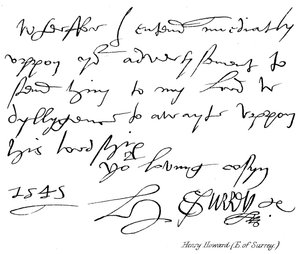 Wherffor I entend imediatly
uppon yor advertisment to
send him to my Lord wt
dyllygence to awayte uppon
his lordship
yor loving cosyn
1545 H Surrey
Henry Howard (E of Surrey)